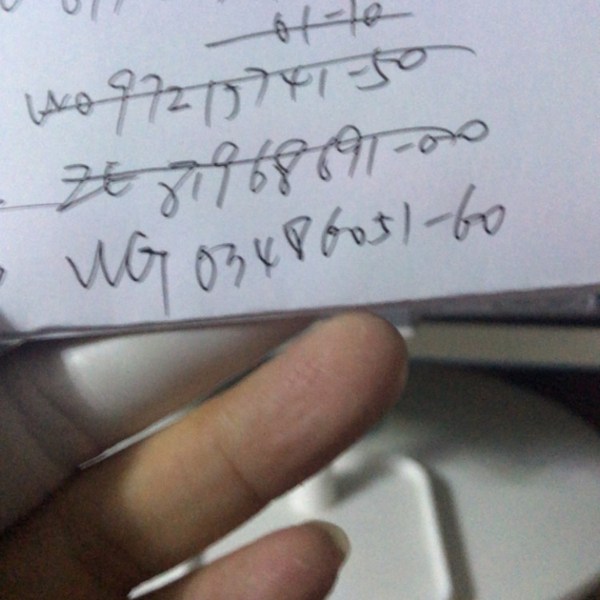 01-10
WO97215741-50
ZE81968691-00
WG03486051-60